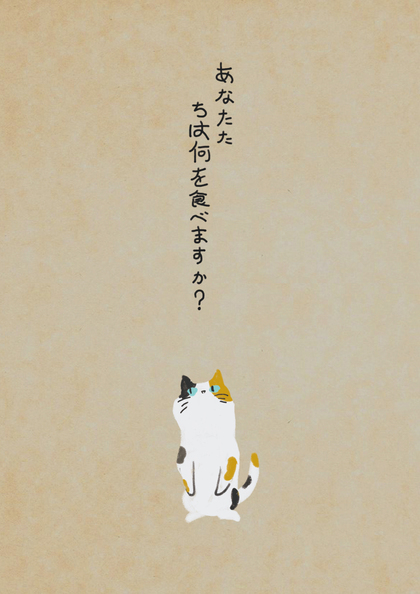 あなたた
ちは何を食べますか？